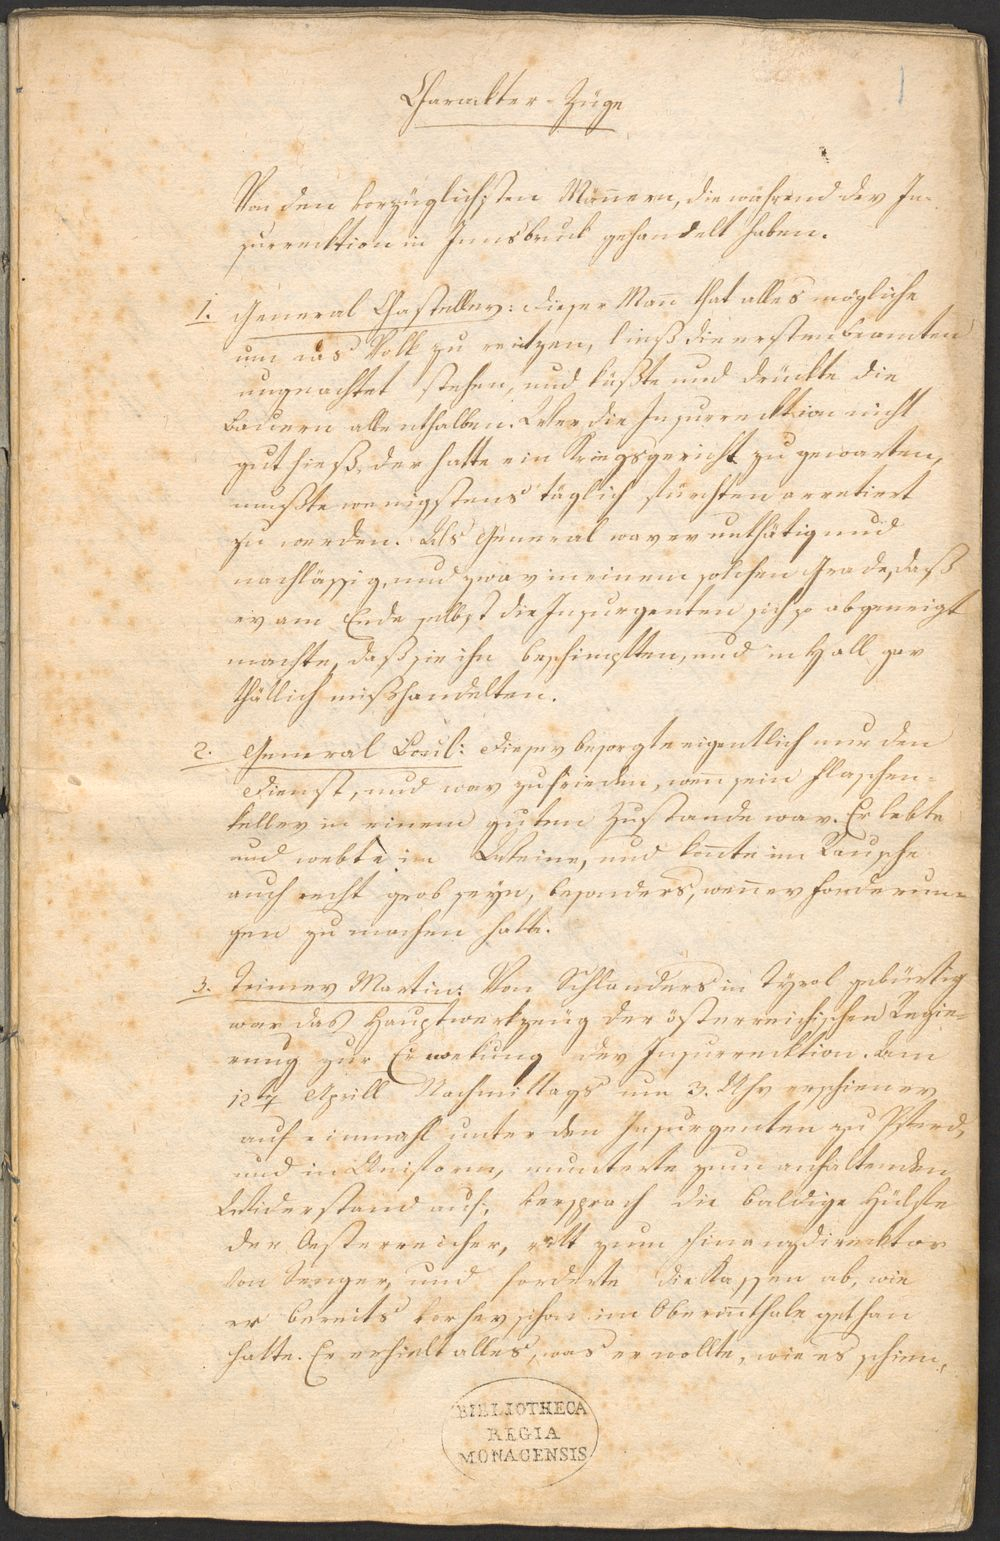 1
Charackter-Züge
Von den vorzüglichsten Mañern, die während der In-
surrecktion in Innsbruck gehandelt haben.
1. General Chasteller: dieser Mañ that alles mögliche
um das Volk zu reitzen, ließ die ersten Beamten
ungeachtet stehen, und küßte und drückte die
Bauern allenthalben. Wer die Insurrecktion nicht
gut hieß, der hatte ein Kriegsgericht zu gewarten,
mußte wenigstens täglich fürchten arretiert
zu werden. Als General war er unthätig und
nachlässig, und zwar in einem solchen Grade, daß
er am Ende selbst die Insurgenten sich so abgeneigt
machte, daß sie ihn beschimpften, und in Hall gar
thätlich mißhandelten.
2. General Boul: dieser besorgte eigentlich nur den
Dienst, und war zufrieden, weñ sein Flaschen-
keller in einem guten Zustande war. Er lebte
und webte im Weine, und koñte im Rausche
auch recht grob seyn, besonders, weñ er Forderun-
gen zu machen hatte.
3. Teimer Martin: Von Schlanders in Tyrol gebürtig
war das Hauptwerkzeug der österreichischen Regie-
rung zur Erwekung der Insurrecktion. Am
12t Aprill Nachmittags um 3. Uhr erschien er
auf einmahl unter den Insurgenten zu Pferd,
und in Uniform, munterte zum anhaltenden
Widerstand auf, versprach die baldige Hülfe
der Oesterreicher, ritt zum Finanzdirecktor
von Senger, und forderte die Kassen ab, wie
er bereits vorher schon im Oberiñthale gethan
hatte. Er erhielt alles, was er wollte, wie es schien,
BIBLIOTHECA
REGIA
MONACENSIS